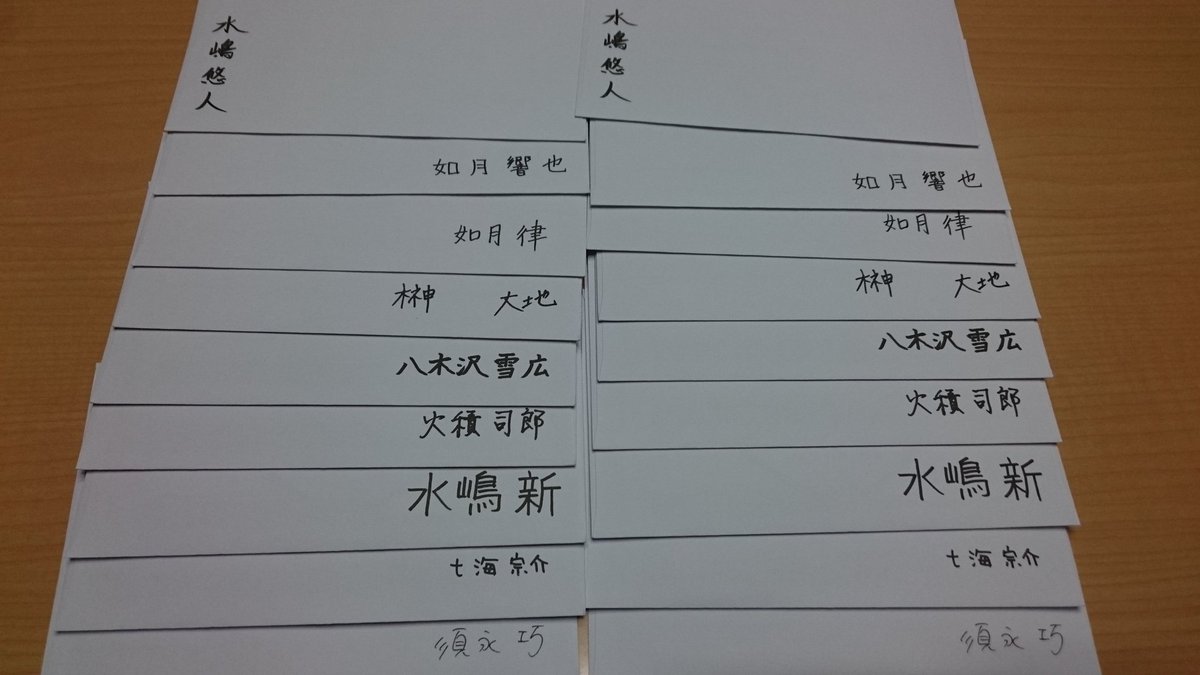 水嶋悠人
如月響也
如月律
榊 大地
八木沢雪広
火積司郎
水嶋新
七海宗介
須永巧
水嶋悠人
如月響也
如月律
榊 大地
八木沢雪広
火積司郎
水嶋新
七海宗介
須永巧